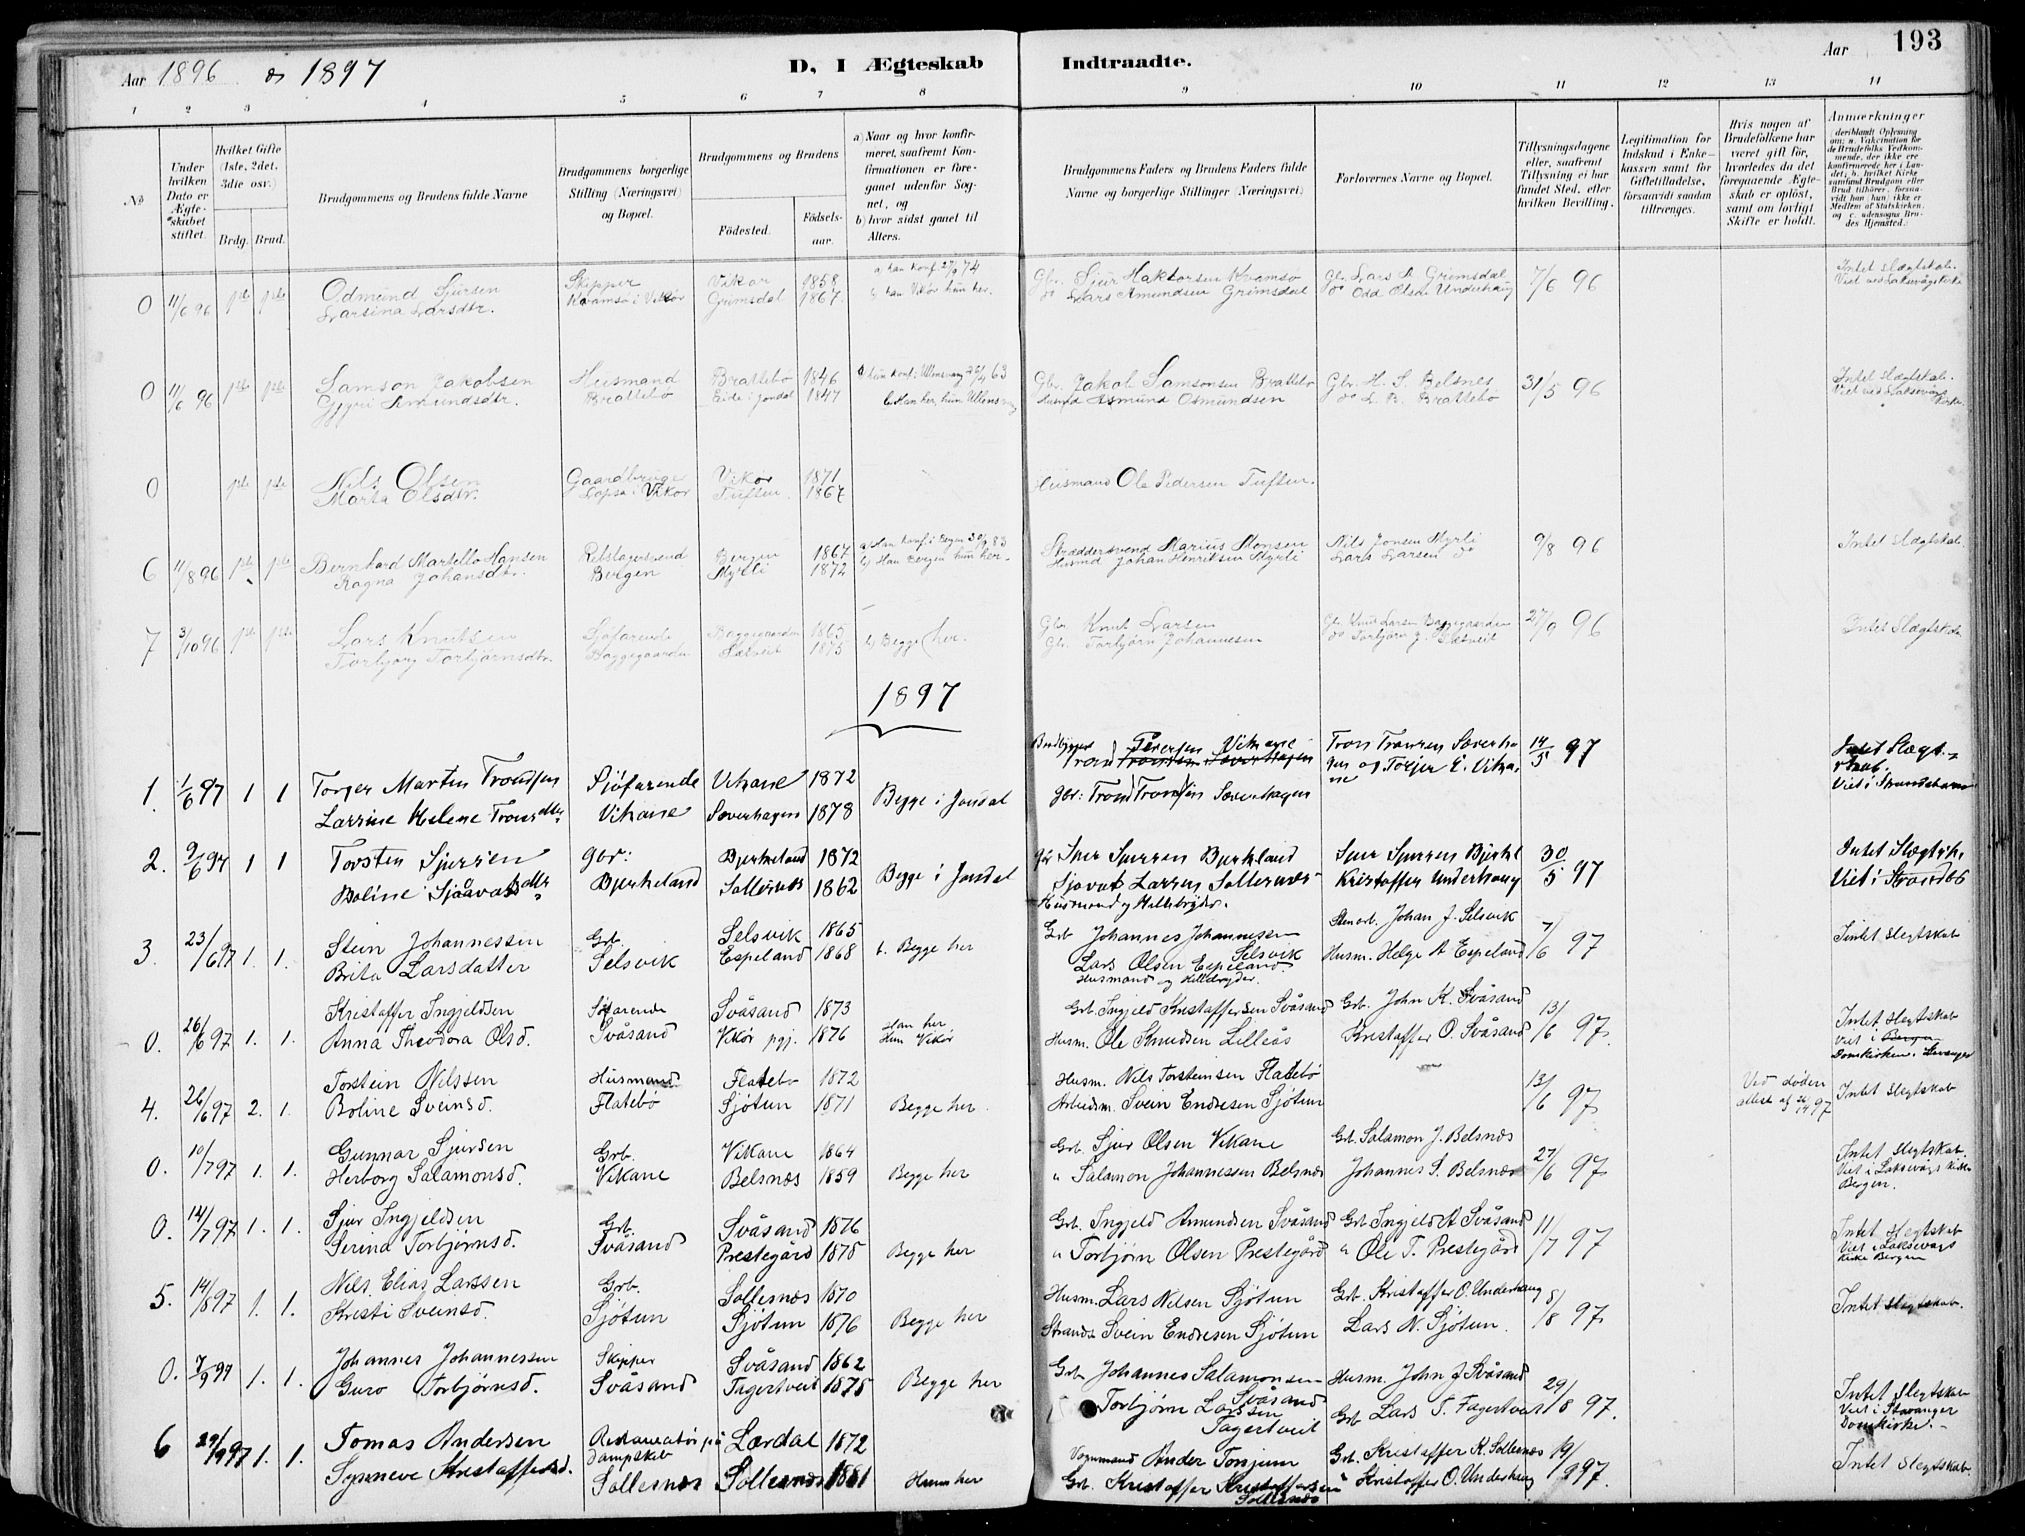 Aar 1896 og 1897 D, I Ægteskab Indtraadte. Aar 193
1 2 3 4 5 6 7 8 9 10 11 12 13 14
No
Under hvilken Dato er Ægteskabet stiftet.
Hvilket Gifte (1ste, 2det, 3die osv.)
Brdg. Brud.
Brudgommens og Brudens fulde Navne
Brudgommens borgerlige Stilling (Næringsvei) og Bopæl.
Brudgommens og Brudens
Fødested. Fødselsaar.
a) Naar og hvor konfirmeret, saafremt Konfirmationen er foregaaet udenfor Sognet, og
b) hvor sidst gaaet til Alters.
Brudgommens Faders og Brudens Faders fulde Navne og borgerlige Stillinger (Næringsvei)
Forlovernes Navne og Bopæl.
Tillysningsdagene eller, saafremt Tillysning ei har fundet Sted, efter hvilken Bevilling.
Legitimation for Indskud i Enkekassen samt for Giftetilladelse, forsaavidt saadan tiltrænges.
Hvis nogen af Brudefolkene har været gift før, hvorledes da det foregaaende Ægteskab er opløst, samt om lovligt Skifte er holdt.
Anmærkninger
(deriblandt Oplysning om: a. Vakcination for de Brudefolks Vedkommende, der ikke ere konfirmerede her i Landet; b. hvilket Kirkesamfund Brudgom eller Brud tilhører, forsaavidt han (hun) ikke er Medlem af Statskirken, og c. udensogns Brudes Hjemsted.)
0 11/6 96 1ste 1ste Odmund Sjursen Skipper Vikør 1858 a, han konf. 27/9 74 Gbr. Sjur Haktorsen Kvamsø Gbr. Lars A. Grimsdal 7/6 96 Intet slægtskab.
Larsina Larsdtr. Kvamsø i Vikør Grimsdal 1867 b, han Vikør, hun her. do Lars Amundsen Grimsdal do Odd Olsen Underhaug Viet ved Laksevågs Kirke
0 11/6 96 1ste 1ste Samson Jakobsen Husmand Brattebø 1846 a, hun konf. i Ullensvang 26/4 63 Gbr. Jakob Samsonsen Brattebø Gbr. H. S. Belsnes 31/5 96 Intet slægtskab.
Gygri Amundsdtr. Brattebø Eide i Jondal 1847 b, Han her, hun Ullensvang Husmd Asmund Osmundsen do L. B. Brattebø Viet ved Laksevåg Kirke.
0 1ste 1ste Nils Olsen Gaardbruger Vikør 1871 Husmand Ole Pedersen Tuften.
Marta Olsdtr. i Vikør Tuften. 1867
6 11/8 96 1ste 1ste Bernhard Martello Hansen Bergen 1867 a, Han konf. i Bergen 30/9 83 Skræddersvend Marius Monsen Nils Jonsen Myrli 9/8 96 Intet slægtskab
Ragna Johansdtr. Bergen Myrli 1872 b, Han Bergen, hun her. Husmd Johan Henriksen Myrli Lars Larsen do
7 3/10 96 1ste 1ste Lars Knutsen Sjøfarende Baggegaarden 1865 b, Begge her. Gbr. Knut Larsen Gb. Knut Larsen Baggegaarden 27/9 96 Intet Slægtskab
Torbjørg Torbjørnsdtr. Baggegaarden Sætveit 1875 Gbr. Torbjørn Johannesen do Torbjørn J. Sætveit
1897
1. 1/6 97 1 1 Torger Martin Trondsen Sjøfarende Vikane 1872 Begge i Jondal Trond Torersen Vikane Tron Tronsen Soverhagen og Torjer E. Vikane 14/5 97 Intet Slægtskab.
Larrine Helene Tronsdtr. Vikane Soverhagen 1878 Gbr: Trond Tronsen Soverhagen Viet i Strandebarm
2. 9/6 97 1 1 Torsten Sjursen Gbr: Bjerkeland 1872 Begge i Jondal Gbr Sjur Sjursen Bjerkland Sjur Sjursen Bjerkl 30/5 97 Intet Slægtsk.
Boline Sjåvatsdtr. Bjerkeland Sollesnes 1862 Sjovat Larsen Sollesnes Kristoffer Underhaug Viet i Strandeb
Husmand og Hillebryder.
3. 23/6 97 1. 1. Stein Johannessen Grb. Selsvik 1865 b. Begge her Grb Johannes Johannessen Selsvik Stenarb. Johan J. Selsvik 7/6 97 Intet slegtskab
Brita Larsdatter Selsvik Espeland 1868 Lars Olsen Espeland. Husm. Helge A Espeland
Husmand og Hillebryder.
0. 26/6 97 1. 1. Kristoffer Ingjeldsen Søfarende Svåsand 1873 Han her Grb. Ingjeld Kristoffersen Svåsand Grb. John K. Svåsand 13/6 97 Intet slegtskab
Anna Theodora Olsd. Svåsand Vikør pgj. 1876 Hun Vikør Husm. Ole Knudsen Lilleås Kristoffer O. Svåsand Viet i Bergen Domkirken, Stavanger
4. 26/6 97 2. 1. Torstein Nilssen Husmand Flatebø 1872 Begge her Husm. Nils Torsteinsen Flatebø 13/6 97 Ved døden Intet slegtskab
Boline Sveinsd. Flatebø Sjøtun 1871 Arbeidsm. Svein Endresen Sjøtun
0. 10/7 97 1. 1. Gunnar Sjursen Grb. Vikane 1864 Begge her Grb. Sjur Olsen Vikane Grb. Salamon J. Belsnæs 27/6 97 Intet slegtskab.
Herborg Salamonsd. Vikane Belsnæs 1859 " Salamon Johannessen Belsnæs Johannes S. Belsnæs Viet i Laksevågs Kirke Bergen.
0. 14/7 97 1. 1. Sjur Ingjeldsen Grb. Svåsand 1876 Begge her Grb. Ingjeld Amundsen Svåsand Grb Ingjeld A Svåsand 11/7 97 Intet slegtskab
Serina Torbjørnsd. Svåsand Prestegård 1875 " Torbjørn Olsen Prestegård " Ole T. Prestegård Viet i Laksevågs Kirke Bergen
5. 14/8 97 1. 1. Nils Elias Larssen Grb. Sollesnæs 1870 Begge her Husm. Lars Nilsen Sjøtun Grb. Kristoffer O. Underhaug 8/8 97 Intet slegtskab.
Kristi Sveinsd. Sjøtun Sjøtun 1876 Strands. Svein Endresen Sjøtun Lars N. Sjøtun.
0. 7/9 97 1. 1. Johannes Johannessen Skipper Svåsand 1862 Begge her Grb Johannes Salamonsen Svåsand Husm. John J Svåsand 29/8 97. Intet Slegtskab
Guro Torbjørnsd. Svåsand Fagertveit 1875 Torbjørn Larssen Fagertveit Grb Lars T. Fagertveit Viet i Stavanger Domkirke.
6 29/9 97 1. 1. Tomas Andersen Restauratør på Dampskib Lærdal 1872 Hun her Vognmand Ander Tonjum Grb. Kristoffer K. Sollesnæs 19/9 97. Intet slegtskab.
Synneve Kristoffersd. Sollesnæs Sollesnæs 1881 Grb. Kristoffer Kristoffersen Sollesnæs " Kristoffer O. Underhaug